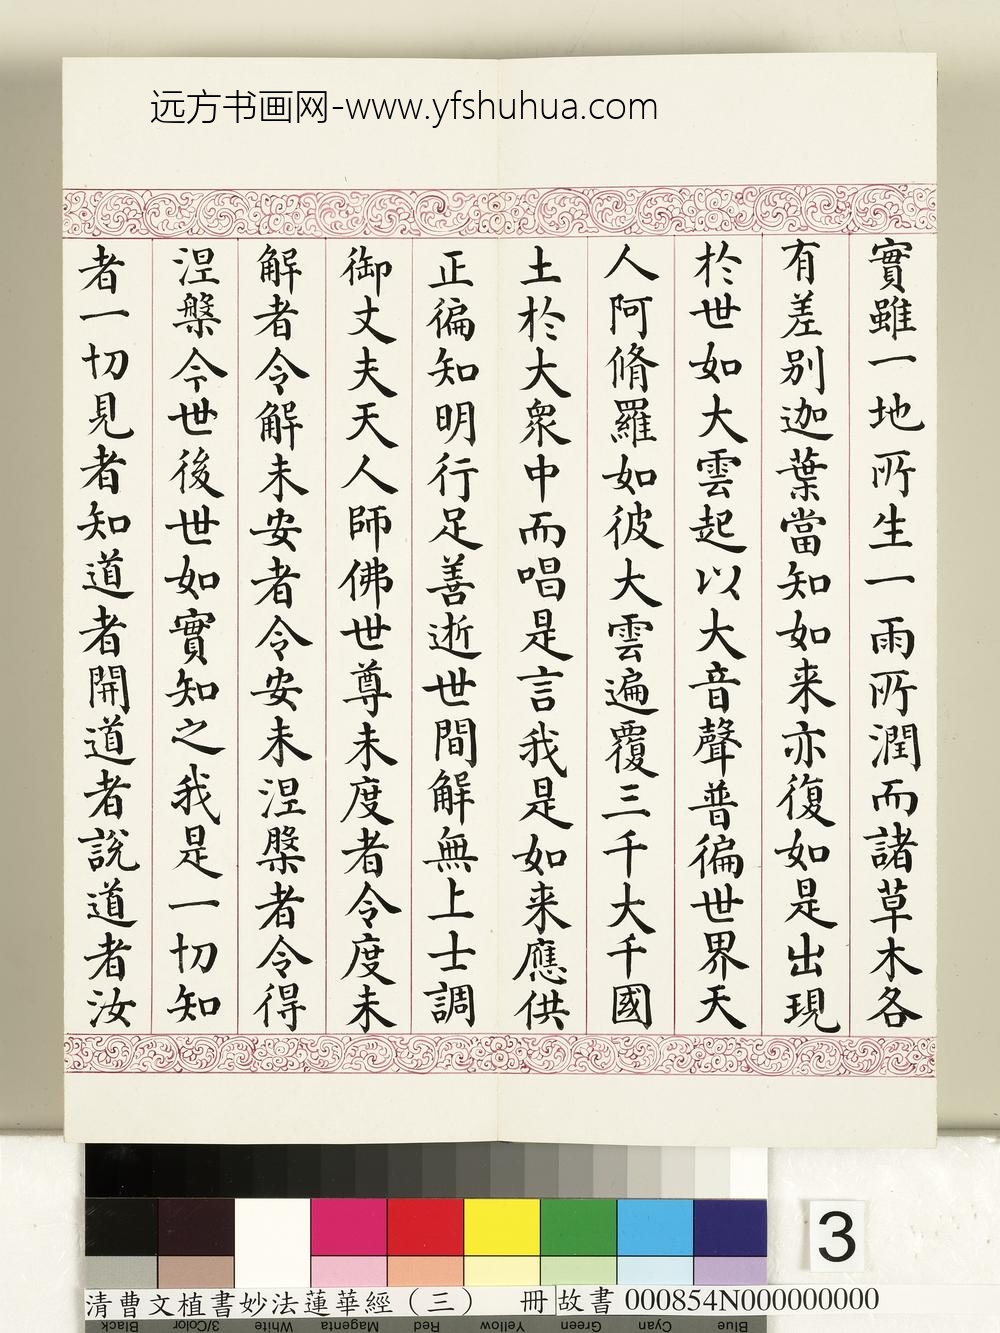 远方书画网-www.yfshuhua.com
實雖一地所生一雨所潤而諸草木各
有差别迦葉當知如来亦復如是出現
於世如大雲起以大音聲普徧世界天
人阿脩羅如彼大雲遍覆三千大千國
土於大衆中而唱是言我是如来應供
正徧知明行足善逝世間解無上士調
御丈夫天人師佛世尊未度者令度未
解者令解未安者令安未涅槃者令得
涅槃今世後世如實知之我是一切知
者一切見者知道者開道者說道者汝
3
清曹文植書妙法蓮華經（三） 冊 故書 000854N000000000
Black 3/Color White Magenta Red Yellow Green Cyan Blue